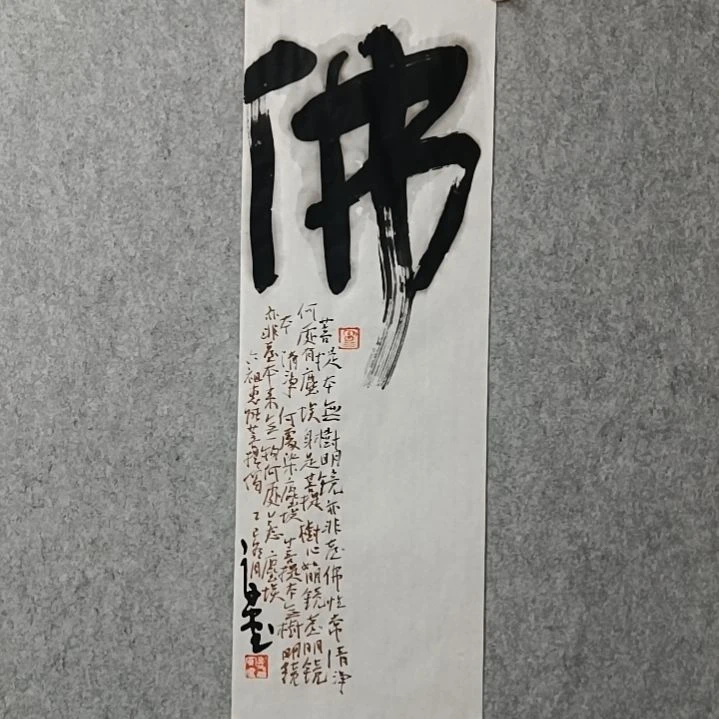 佛
菩提本無樹明鏡亦非臺佛性常清淨
何處有塵埃身是菩提樹心如明鏡臺明鏡
本清淨何處染塵埃菩提本無樹明鏡
亦非臺本来無一物何處惹塵埃
六祖惠能菩提偈 乙巳年